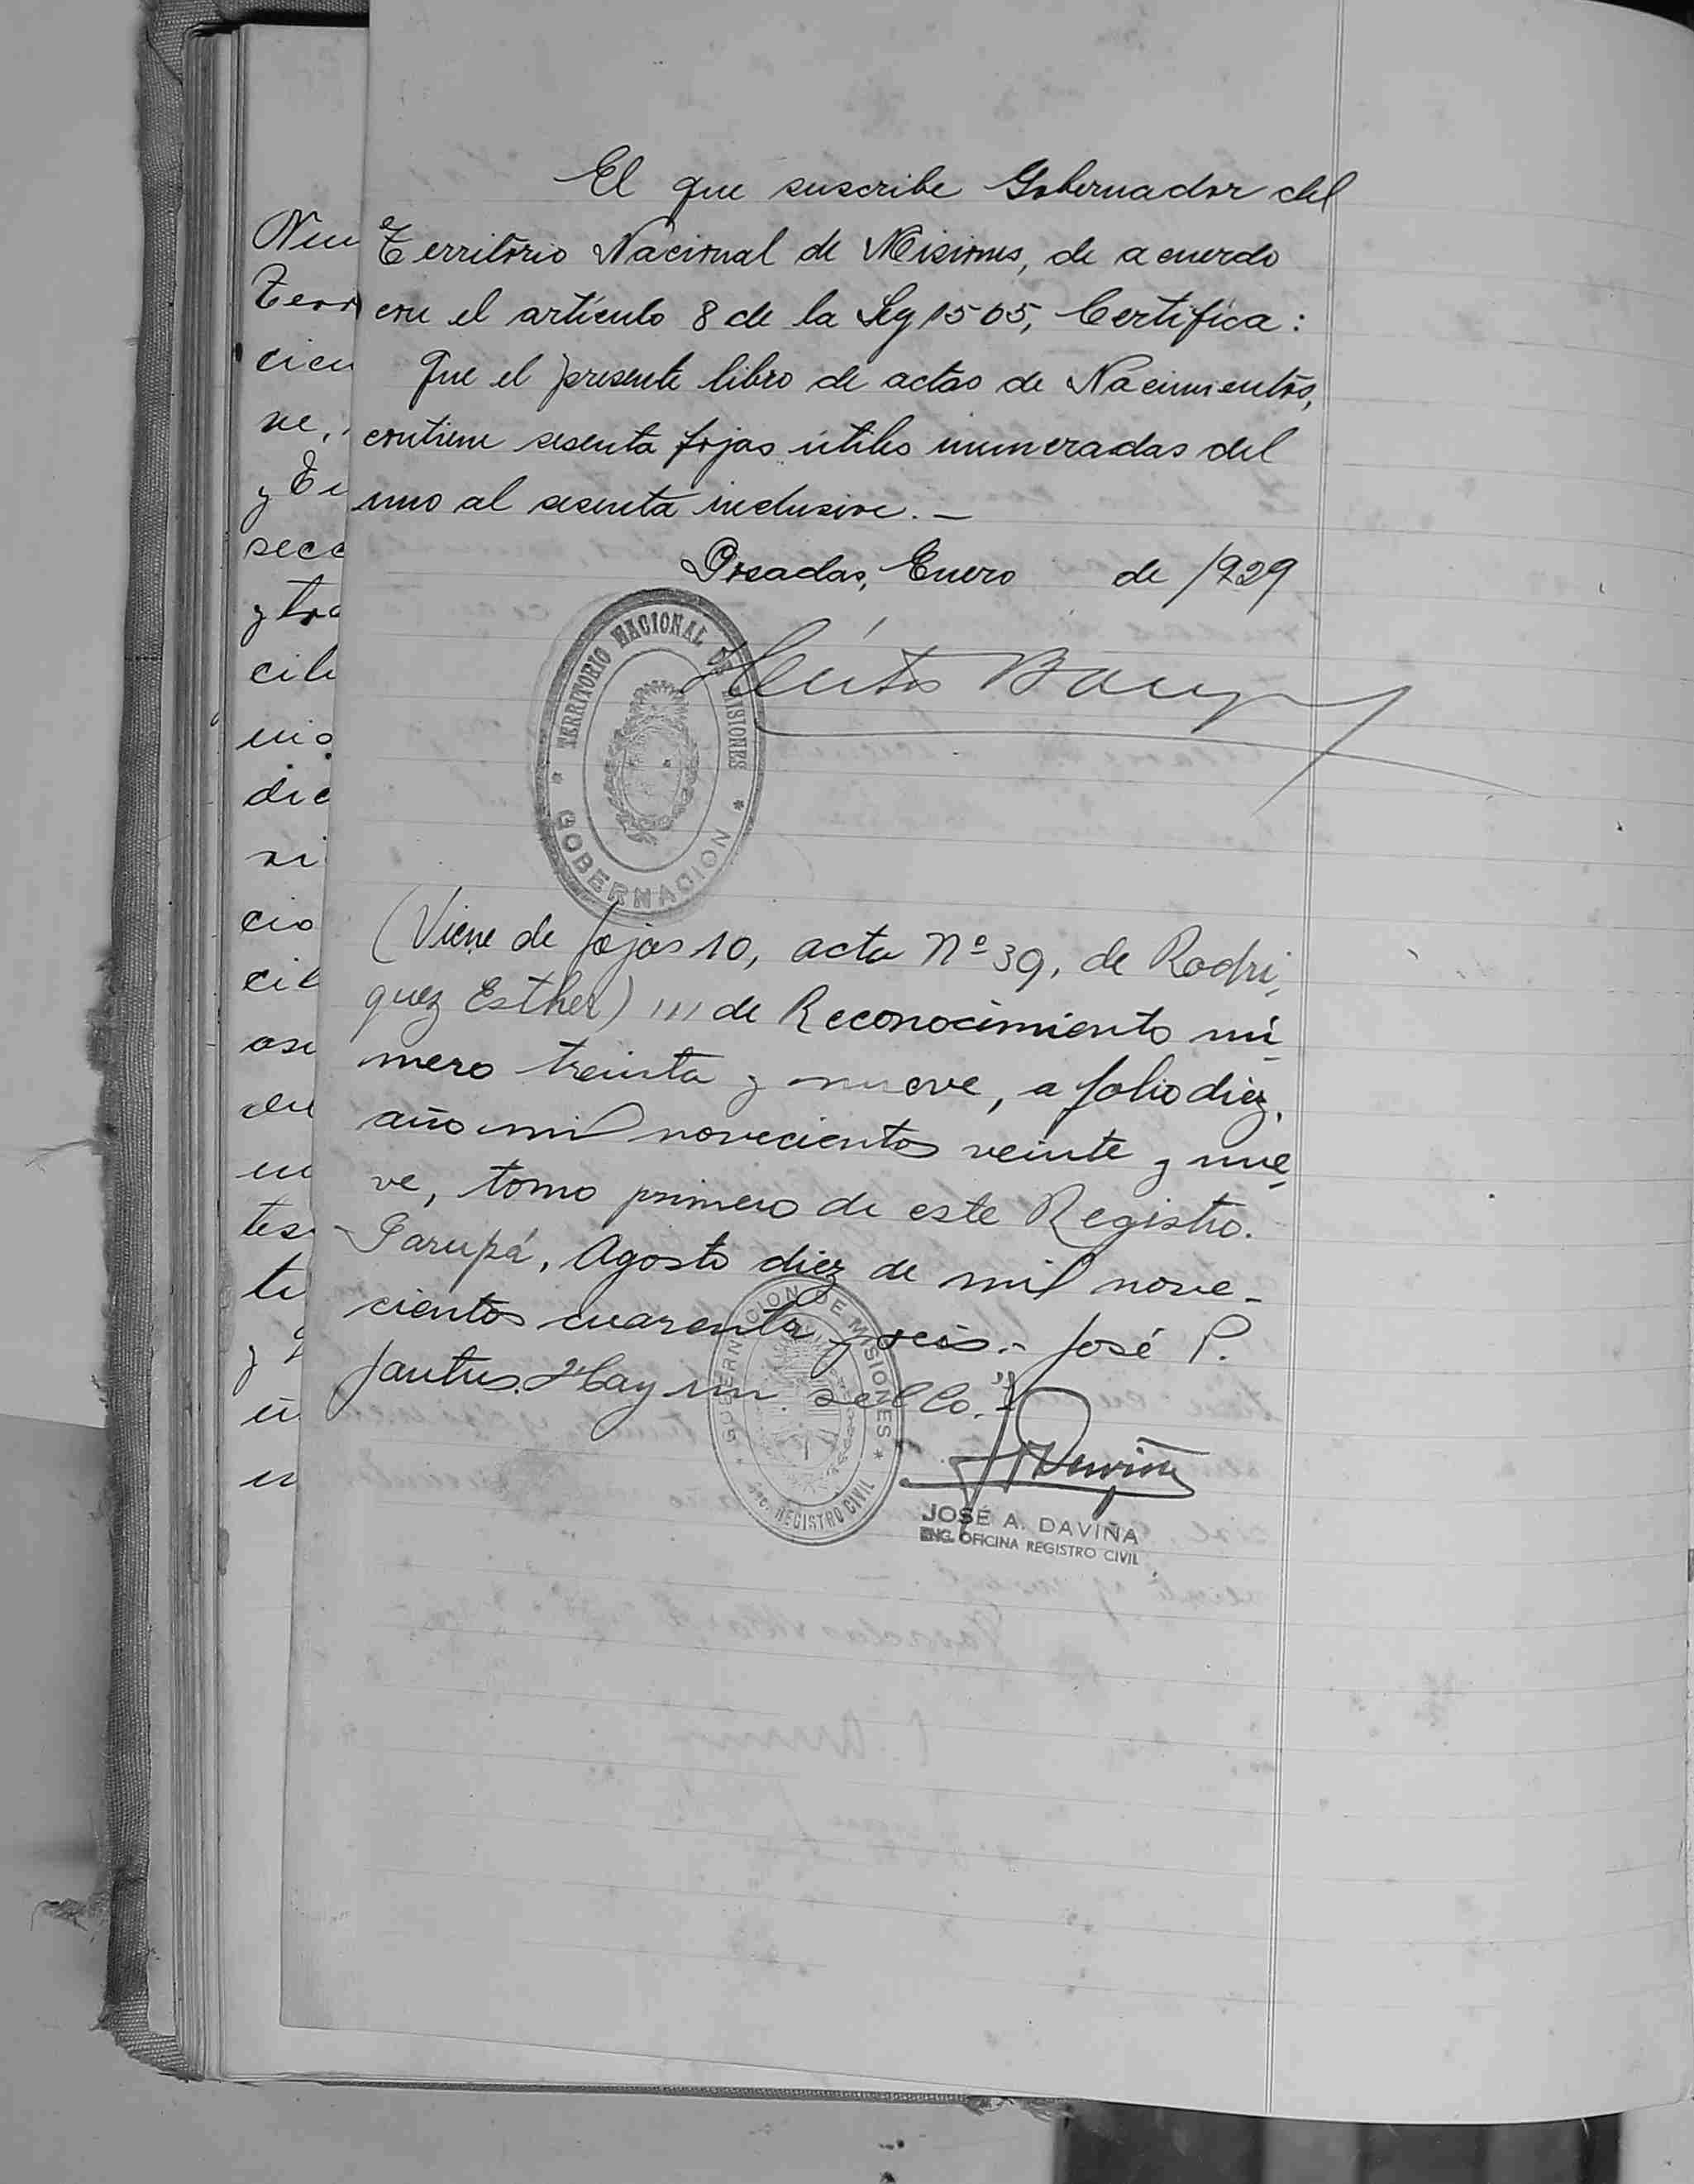 El que suscribe Gobernador del
Territorio Nacional de Misiones, de acuerdo
con el artículo 8 de la Ley 1565, Certifica:
Que el presente libro de actas de Nacimientos,
contiene sesenta fojas útiles numeradas del
uno al sesenta inclusive. _
Posadas, Enero de 1929
TERRITORIO NACIONAL DE MISIONES
GOBERNACION
(Viene de fojas 10, acta Nº 39, de Rodri-
guez Esther) ''' de Reconocimiento nú-
mero treinta y nueve, a folio diez,
año mil novecientos veinte y nue-
ve, tomo primero de este Registro.
Garupá, Agosto diez de mil nove-
cientos cuarenta y seis.- José P.
Hay un sello."
GOBERNACION DE MISIONES
REGISTRO CIVIL
JOSÉ A. DAVIÑA
ENC. OFICINA REGISTRO CIVIL
Nu
Terr
cien
ve,
y
secc
y tra
cili
nio
dic
ni
cio
cil
ase
du
un
tes
te
y